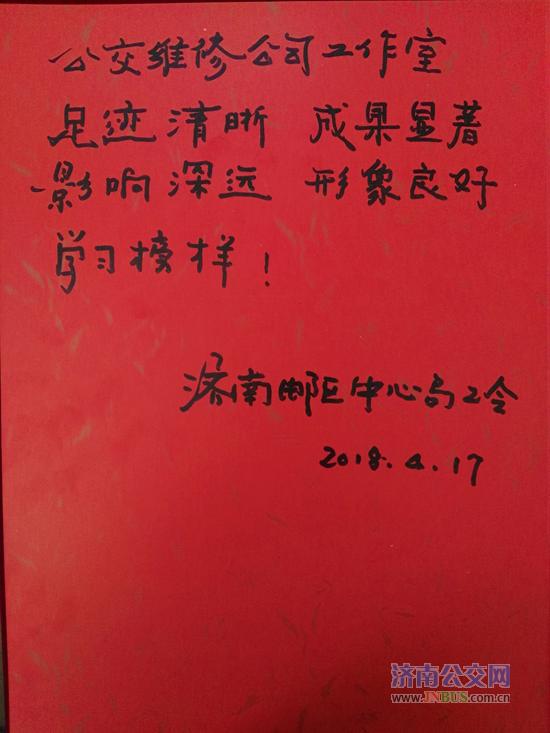 公交维修公司工作室
足迹清晰 成果显著
影响深远 形象良好
学习榜样！
济南邮区中心局工会
2018.4.17
济南公交网
www.JNBUS.com.cn